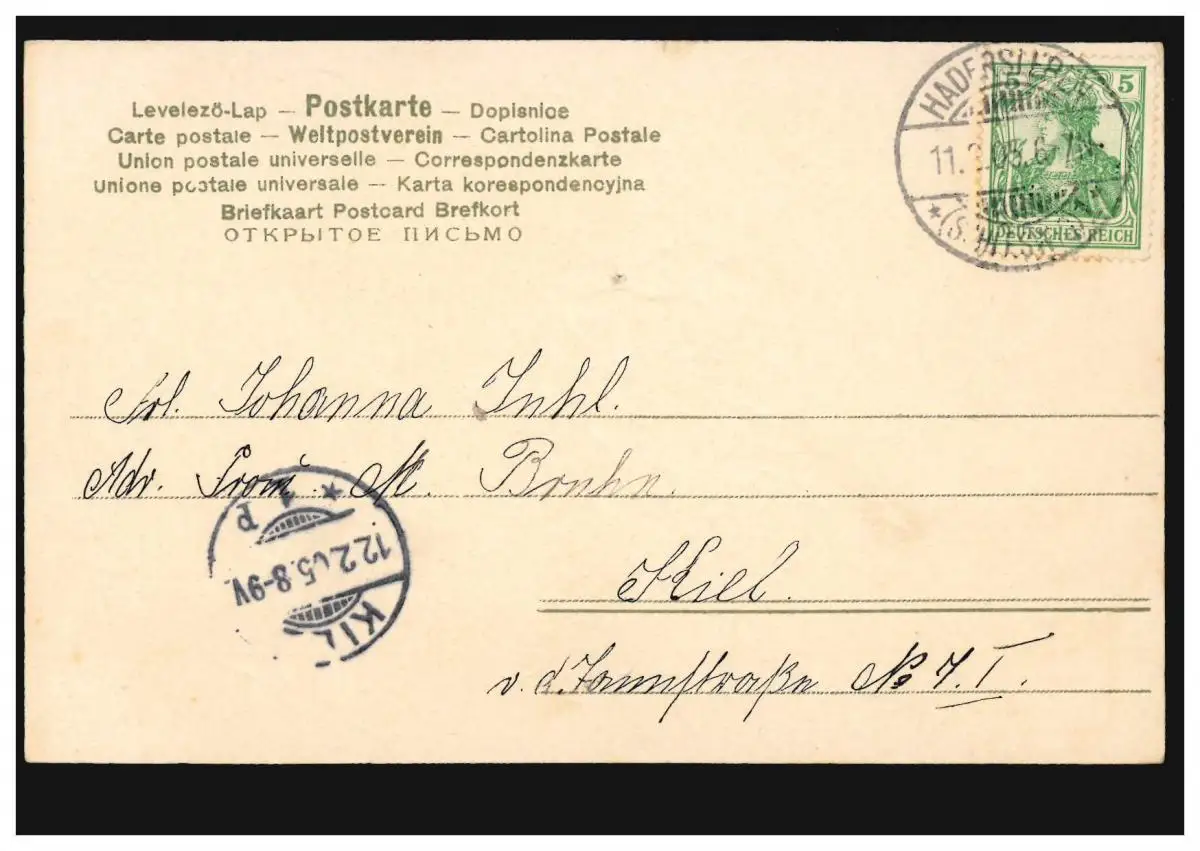 Levelező-Lap — Postkarte — Dopisnice
Carte postale — Weltpostverein — Cartolina Postale
Union postale universelle — Correspondenzkarte
Unione postale universale — Karta korespondencyjna
Briefkaart Postcard Brefkort
ОТКРЫТОЕ ПИСЬМО
HADERSLEBEN
5
DEUTSCHES REICH
Frl. Johanna Juhl.
Adr. Frau M. Bruhn.
12.2.05.8-9V.
Kiel.
v. d. Tannstraße No 7. I.